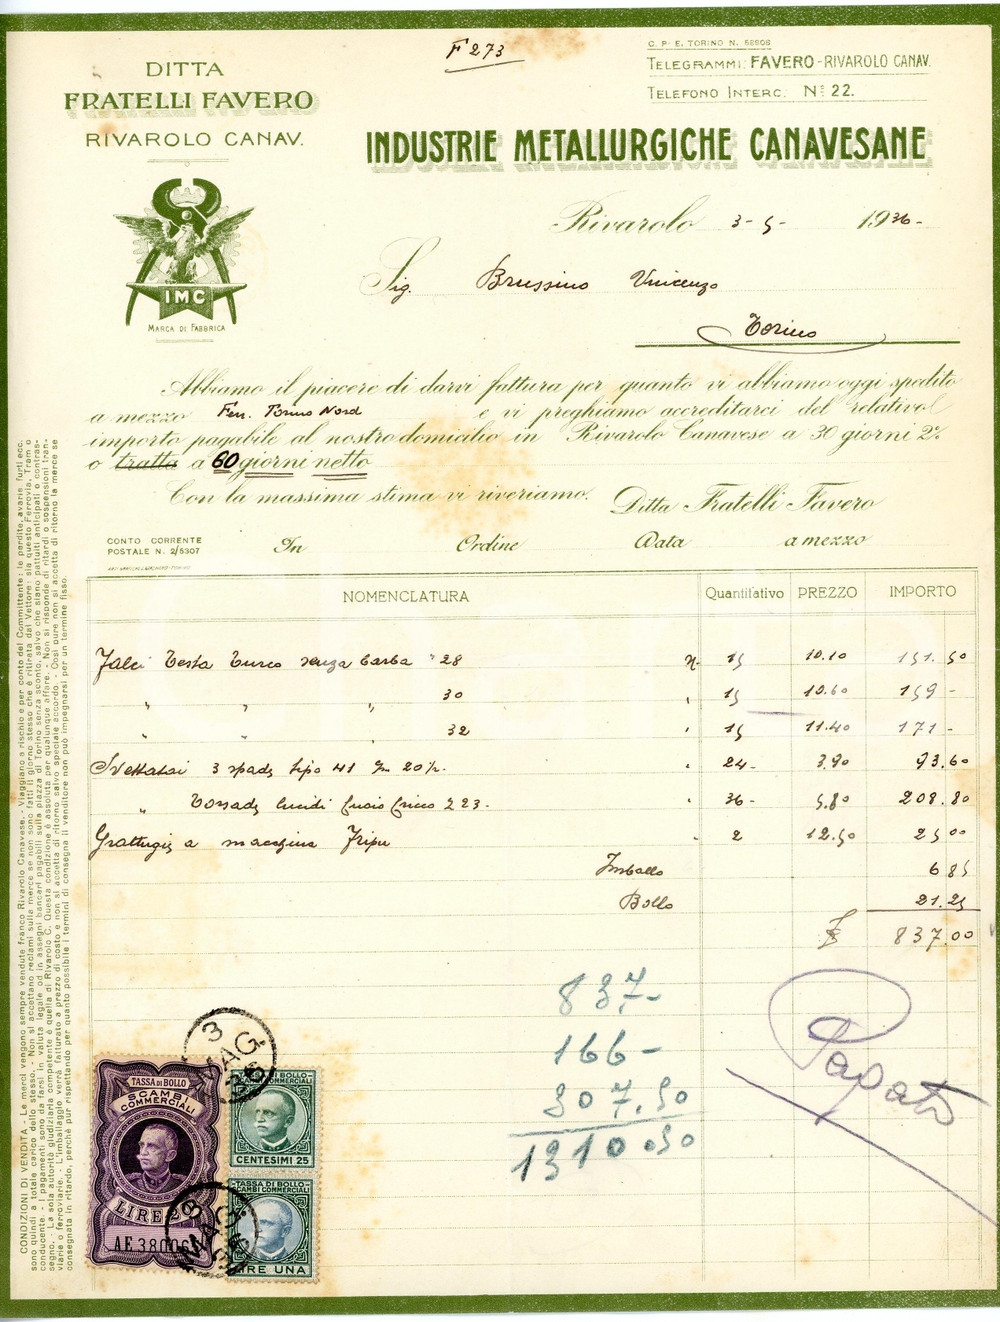 F 273
C. P. E. TORINO N. 58808
TELEGRAMMI: FAVERO-RIVAROLO CANAV.
TELEFONO INTERC. No 22.
DITTA
FRATELLI FAVERO
RIVAROLO CANAV.
INDUSTRIE METALLURGICHE CANAVESANE
IMC
MARCA DI FABBRICA
Rivarolo 3-5- 1936-
Sig. Brussino Vincenzo
Torino
Abbiamo il piacere di darvi fattura per quanto vi abbiamo oggi spedito
a mezzo Ferr. Torino Nord e vi preghiamo accreditarci del relativo
importo pagabile al nostro domicilio in Rivarolo Canavese a 30 giorni 2%
o tratta a 60 giorni netto
Con la massima stima vi riveriamo. Ditta Fratelli Favero
CONTO CORRENTE
POSTALE N. 2/5307
In Ordine Data a mezzo
NOMENCLATURA Quantitativo PREZZO IMPORTO
Falci Testa Turco senza barba " 28 N- 15 10.10 151.50
" " " 30 " 15 10.60 159-
" " " 32 " 15 11.40 171-
3 tipo 41 20 " 24- 3.90 93.60
" lucidi 223- " 36- 5.80 208.80
Grattugie a macchina " 2 12.50 25 00
Imballo 6 85
Bollo 21.25
837.00
837-
166-
307.50
1310.50
Pagato
3 MAG 36
TASSA DI BOLLO
SCAMBI
COMMERCIALI
LIRE 2
AE.38006
TASSA DI BOLLO
SCAMBI COMMERCIALI
CENTESIMI 25
TASSA DI BOLLO
SCAMBI COMMERCIALI
LIRE UNA
3 MAG 36
CONDIZIONI DI VENDITA - Le merci vengono sempre vendute franco Rivarolo Canavese. - Viaggiano a rischio e per conto del Committente: le perdite, avarie, furti ecc.
sono quindi a totale carico dello stesso. - Non si accettano reclami sulla merce se non sono fatti il giorno stesso che è ritirata dal Vettore: sia questo Ferrovia, Tram o
conducente. - I pagamenti sono da farsi in valuta legale od in assegni bancari pagabili sulla piazza di Torino senza sconto, salvo che siano pattuiti anticipati o contras-
segno. - La sola autorità giudiziaria competente è quella di Rivarolo C. Questa condizione è assoluta per qualunque affare. - Non si risponde di ritardi o sospensioni tran-
viarie o ferroviarie. - L'imballaggio verrà fatturato a prezzo di costo e non si accetta di ritorno salvo speciale accordo. - Così pure non si accetta di ritorno la merce se
consegnata in ritardo, perchè pur rispettando per quanto possibile i termini di consegna il venditore non può impegnarsi per un termine fisso.